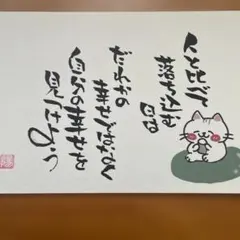 人と比べて
落ち込む
日も
だれかの
幸せではなく
自分の幸せを
見つけよう